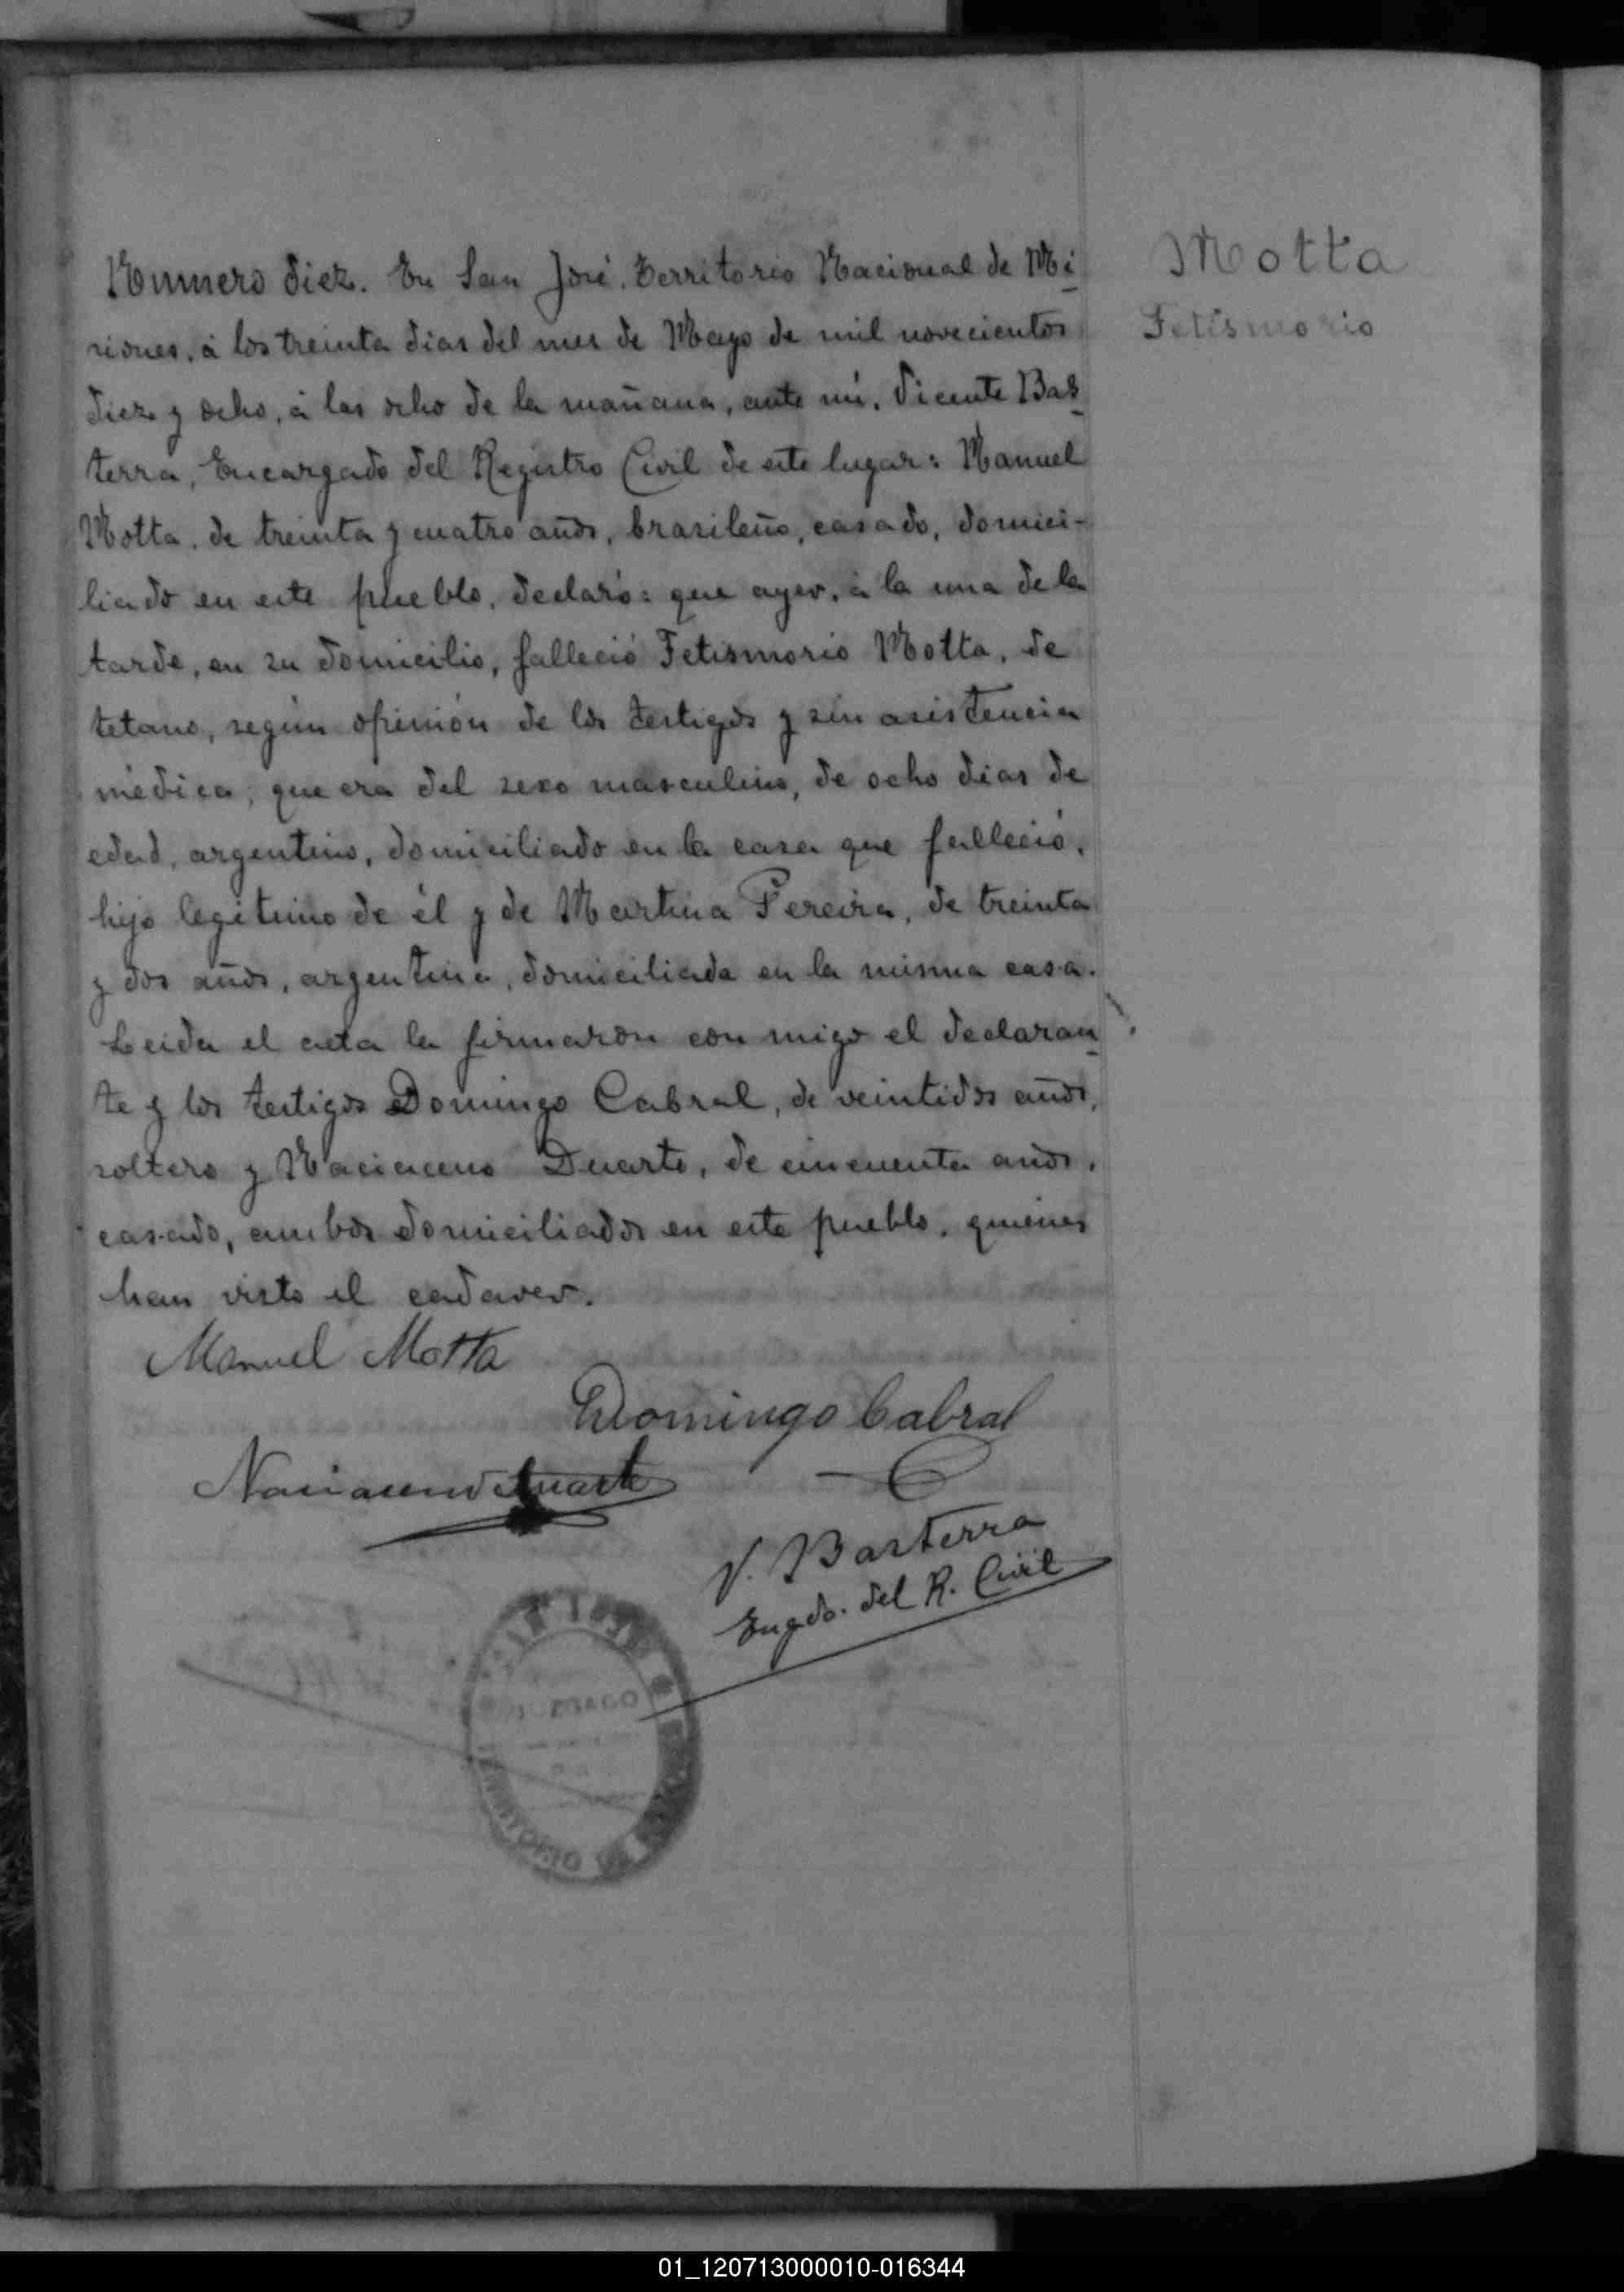 Numero diez. En San José, Territorio Nacional de Mi
siones, á los treinta dias del mes de Mayo de mil novecientos
diez y ocho, á las ocho de la mañana, ante mi, Vicente Bas
terra, Encargado del Registro Civil de este lugar: Manuel
Motta, de treinta y cuatro años, brasileño, casado, domici-
liado en este pueblo, declaró: que ayer, á la una de la
tarde, en su domicilio, falleció Fetismorio Motta, de
tetano, según opinión de los testigos y sin asistencia
médica; que era del sexo masculino, de ocho dias de
edad, argentino, domiciliado en la casa que falleció,
hijo legitimo de él y de Martina Pereira, de treinta
y dos años, argentina, domiciliada en la misma casa.
Leida el acta la firmaron con migo el declaran
te y los testigos Domingo Cabral, de veintidos años,
soltero y Naciaceno Duarte, de cincuenta años,
casado, ambos domiciliados en este pueblo, quienes
han visto el cadaver.
Manuel Motta
Domingo Cabral
Naciaceno Duarte
V. Basterra
Engdo. del R. Civil
JUZGADO
TERRITORIO DE
Motta
Fetismorio
01_120713000010-016344